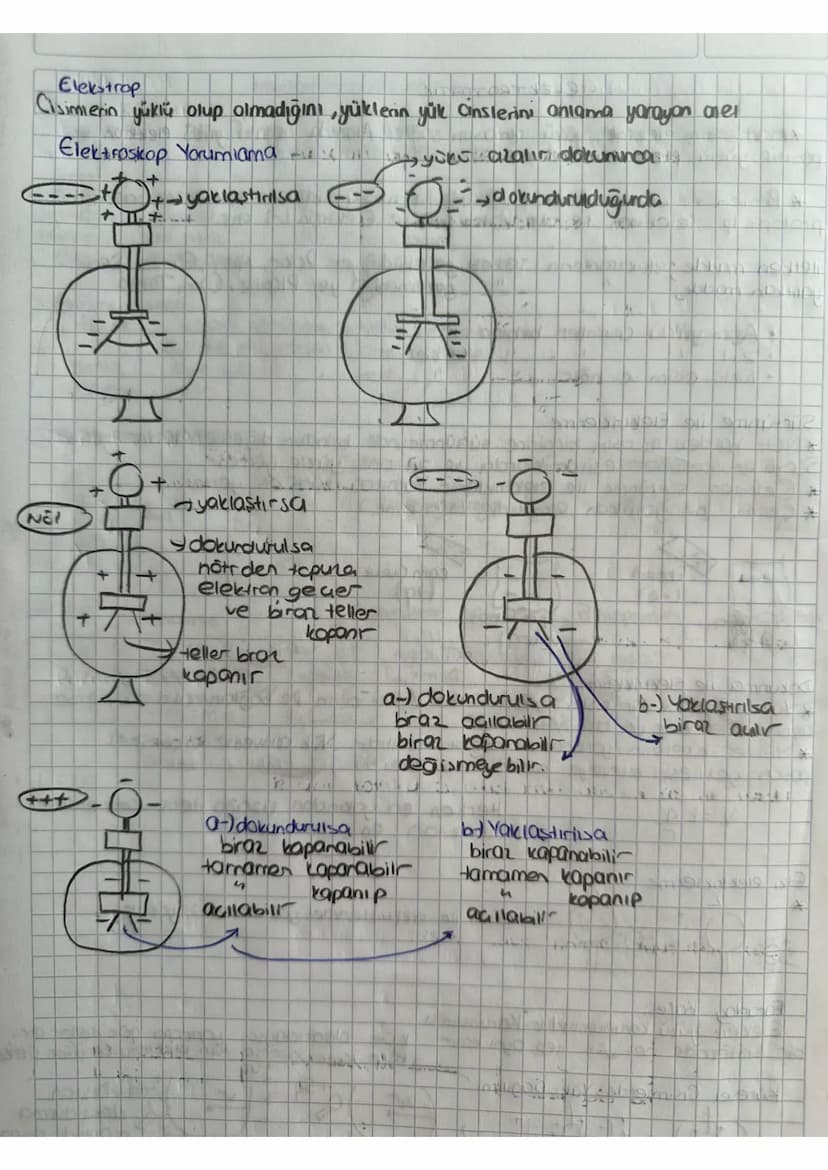 Elekstrop
Cisimlerin yüklü olup olmadığını, yüklerin yük cinslerini anlama yarayan alet
Elektroskop Yorumlama
→ yükü azalır dokununca
---- + + + + + + → yaklaştırılsa
--- - - - - → dokundurulduğunda
+ + +
Nötr
→ yaklaştırsa
→ dokundurulsa
nötrden topuza
elektron geçer
ve biraz teller
kapanır
+ + + +
→ teller biraz
kapanır
--- - - -
- - - -
a-) dokundurulsa
biraz açılabilir
biraz kapanabilir
değişmeyebilir.
b-) Yaklaştırılsa
biraz açılır
+++ - - -
a-) dokundurulsa
biraz kapanabilir
tamamen kapanabilir
" kapanıp
açılabilir
b-) Yaklaştırılsa
biraz kapanabilir
tamamen kapanır
" kapanıp
açılabilir